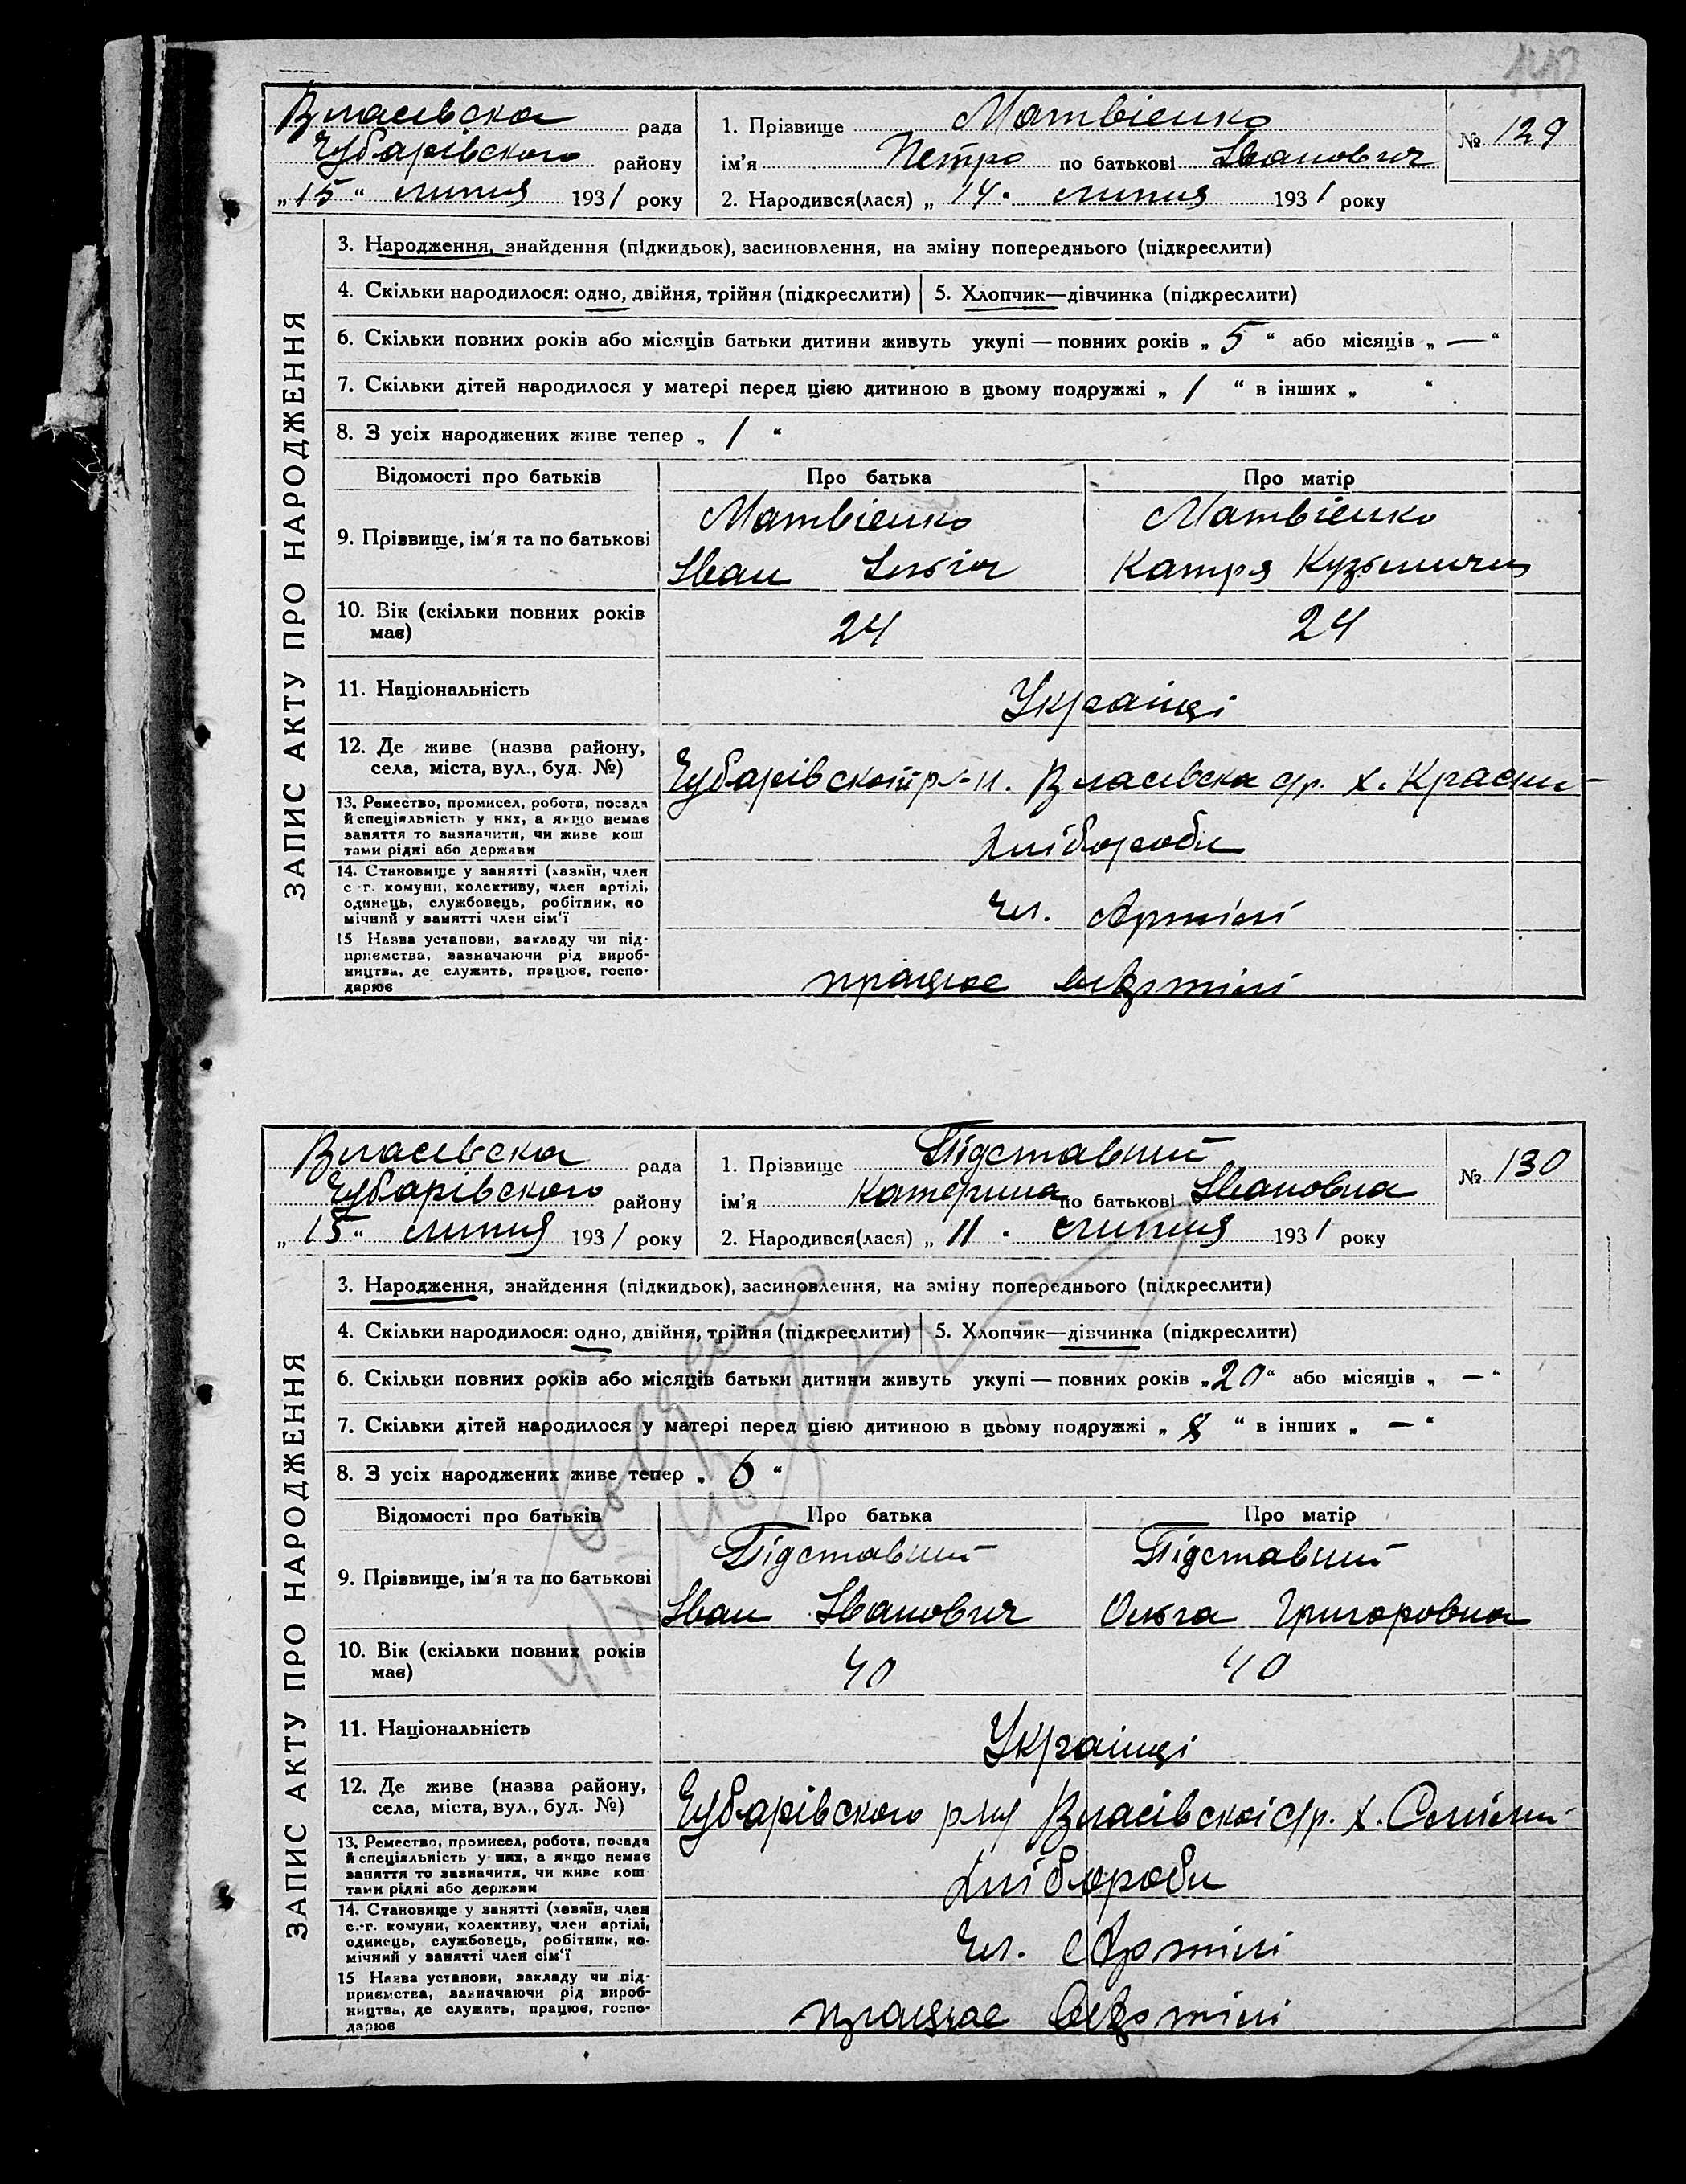 140
Власівска рада
Чубарівского району
„15“ липня 1931 року
1. Прізвище Матвієнко
ім'я Петро по батькові Іванович
2. Народився(лася) „14“ липня 1931 року
№ 129
ЗАПИС АКТУ ПРО НАРОДЖЕННЯ
3. Народження, знайдення (підкидьок), засиновлення, на зміну попереднього (підкреслити)
4. Скільки народилося: одно, двійня, трійня (підкреслити) 5. Хлопчик—дівчинка (підкреслити)
6. Скільки повних років або місяців батьки дитини живуть укупі — повних років „5“ або місяців „—“
7. Скільки дітей народилося у матері перед цією дитиною в цьому подружжі „1“ в інших „ “
8. З усіх народжених живе тепер „1“
Відомості про батьків Про батька Про матір
9. Прізвище, ім'я та по батькові
Матвієнко
Іван Ілліч
Матвієнко
Катря Кузьминична
10. Вік (скільки повних років
має)
24
24
11. Національність
Українці
12. Де живе (назва району,
села, міста, вул., буд. №)
Чубарівской р-н. Власівска с/р. х.
13. Ремество, промисел, робота, посада
й спеціяльність у них, а якщо немає
заняття то зазначити, чи живе кош
тами рідні або держави
Хлібороби
14. Становище у занятті (хазяїн, член
с.-г. комуни, колективу, член артілі,
одинець, службовець, робітник, по
мічний у занятті член сім'ї
Чл. Артілі
15 Назва установи, закладу чи під-
приємства, зазначаючи рід вироб-
ництва, де служить, працює, госпо-
дарює
працює в артілі
Власівска рада
Чубарівского району
„15“ липня 1931 року
1. Прізвище Підставний
ім'я Катерина по батькові Івановна
2. Народився(лася) „11“ липня 1931 року
№ 130
ЗАПИС АКТУ ПРО НАРОДЖЕННЯ
3. Народження, знайдення (підкидьок), засиновлення, на зміну попереднього (підкреслити)
4. Скільки народилося: одно, двійня, трійня (підкреслити) 5. Хлопчик—дівчинка (підкреслити)
6. Скільки повних років або місяців батьки дитини живуть укупі — повних років „20“ або місяців „—“
7. Скільки дітей народилося у матері перед цією дитиною в цьому подружжі „8“ в інших „—“
8. З усіх народжених живе тепер „6“
Відомості про батьків Про батька Про матір
9. Прізвище, ім'я та по батькові
Підставний
Іван Іванович
Підставний
Ольга Григоровна
10. Вік (скільки повних років
має)
40
40
11. Національність
Українці
12. Де живе (назва району,
села, міста, вул., буд. №)
Чубарівского р-ну Власівскої с/р. х.
13. Ремество, промисел, робота, посада
й спеціяльність у них, а якщо немає
заняття то зазначити, чи живе кош
тами рідні або держави
Хлібороби
14. Становище у занятті (хазяїн, член
с.-г. комуни, колективу, член артілі,
одинець, службовець, робітник, по-
мічний у занятті член сім'ї
Чл. Артілі
15 Назва установи, закладу чи під-
приємства, зазначаючи рід вироб-
ництва, де служить, працює, госпо-
дарює
працює в артілі